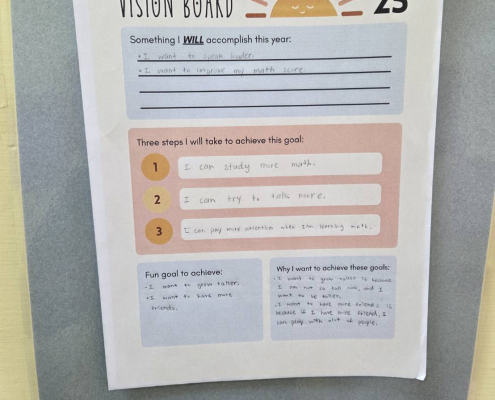 VISION BOARD 25
Something I WILL accomplish this year:
• I want to speak louder.
• I want to improve my math score.
Three steps I will take to achieve this goal:
1 I can study more math.
2 I can try to talk more.
3 I can pay more attention when I'm learning math.
Fun goal to achieve:
• I want to grow taller.
• I want to have more
friends.
Why I want to achieve these goals:
• I want to grow taller is because
I am not so tall now, and I
want to be taller.
• I want to have more friends is
because if I have more friend, I
can play with alot of people.